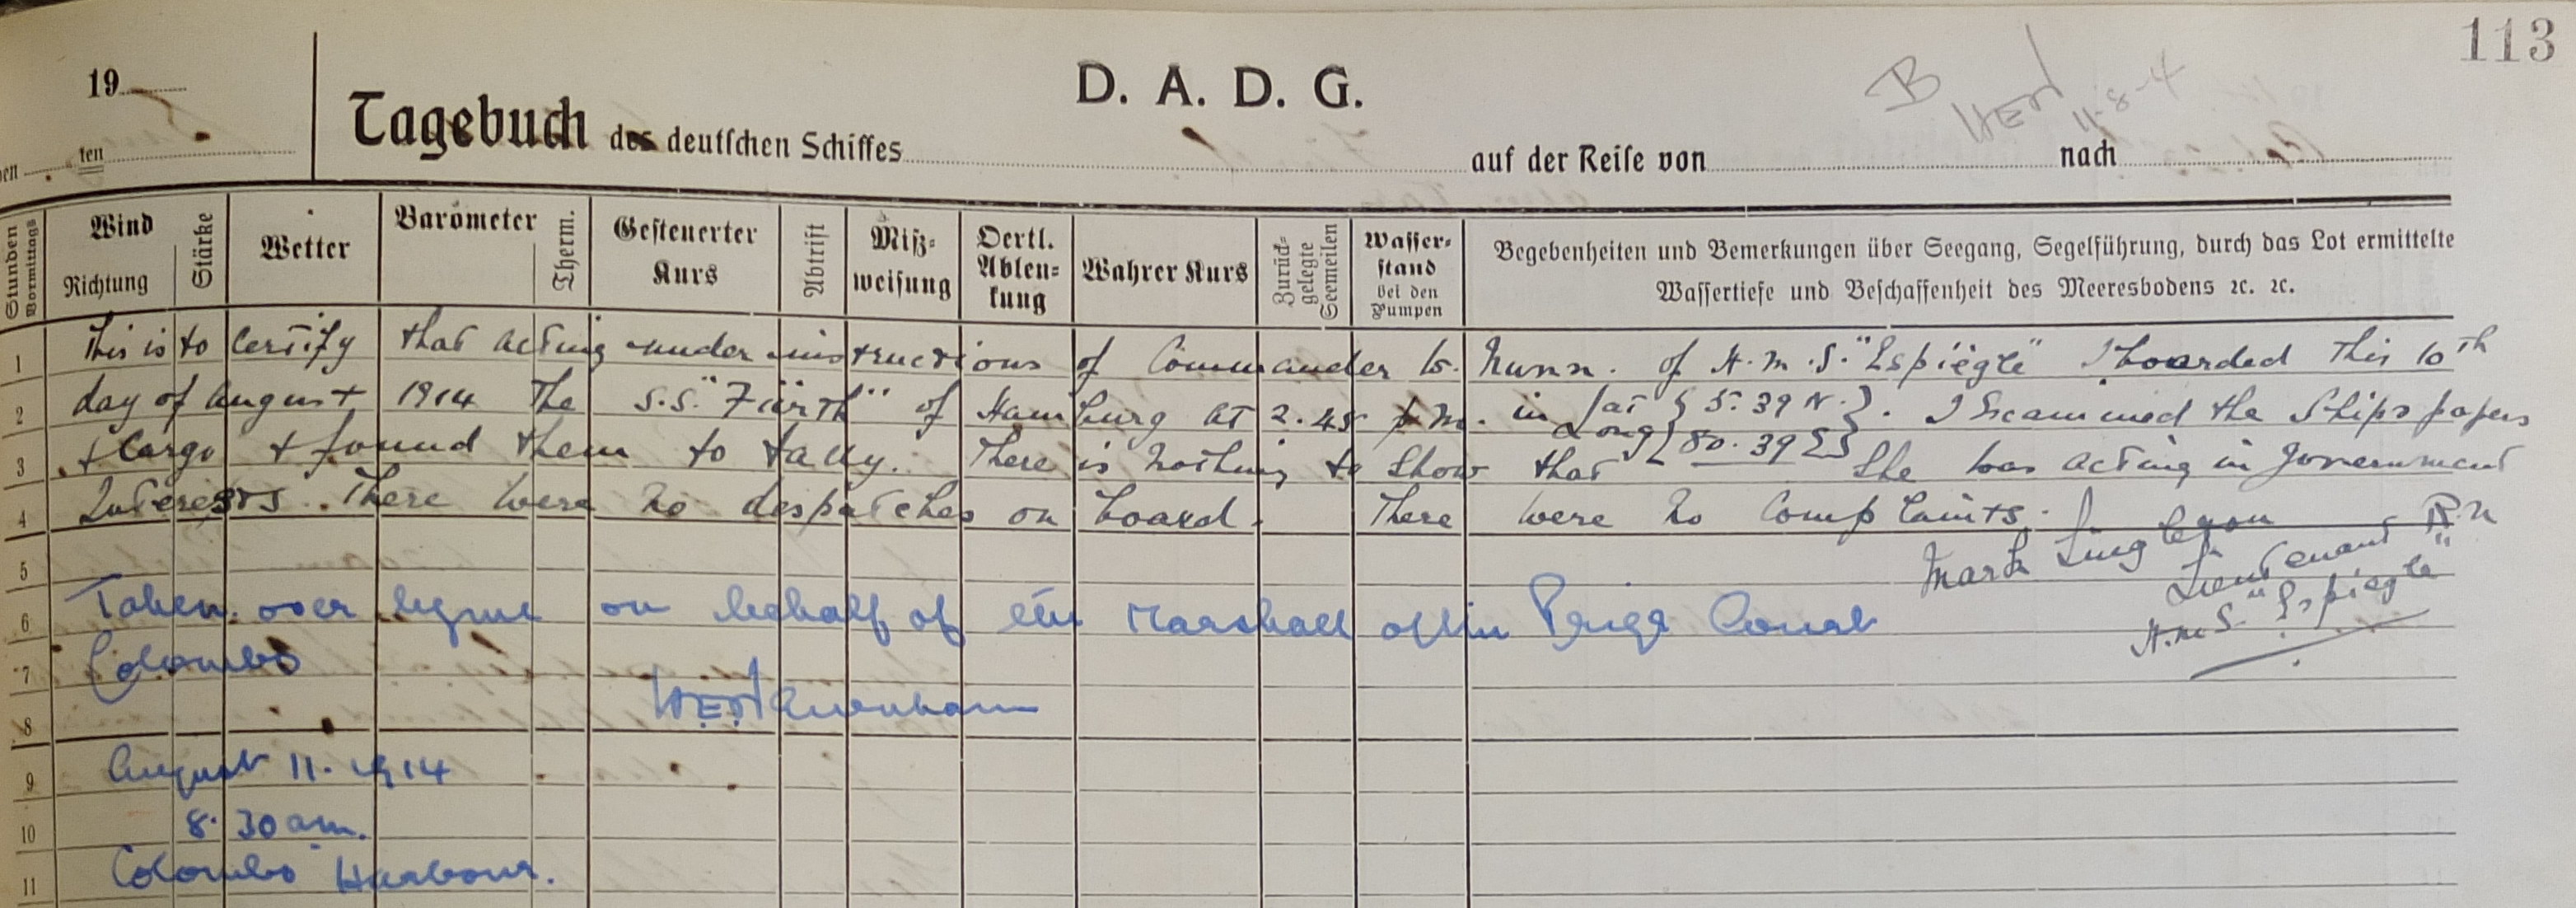 113
19
D. A. D. G.
B
HEN
11-8-4
ten
Tagebuch des deutschen Schiffes auf der Reise von nach
Stunden Vormittags
Wind
Richtung
Stärke
Wetter
Barometer
Therm.
Gesteuerter
Kurs
Abtrift
Miß-
weisung
Oertl.
Ablen-
kung
Wahrer Kurs
Zurück-
gelegte
Seemeilen
Wasser-
stand
bei den
Pumpen
Begebenheiten und Bemerkungen über Seegang, Segelführung, durch das Lot ermittelte
Wassertiefe und Beschaffenheit des Meeresbodens ꝛc. ꝛc.
1 This is to certify that acting under instructions of Commander W. Nunn. of H.M.S. "Espiègle" I boarded this 10th
2 day of August 1914 the S.S. "Fürth" of Hamburg at 2.45 p.m. in Lat { 5.39 N. }. I examined the Ships papers
Long { 80.39 E }
3 + Cargo + found them to tally. There is nothing to show that She was acting in Government
4 Interests. There were no despatches on board. There were no complaints.
Mark Singleton
Lieutenant R.N
H.M.S. "Espiegle"
5
6 Taken over by me on behalf of the Marshall of the Prize Court
7 Colombo
8
9 August 11. 1914
10 8.30 am.
11 Colombo Harbour.